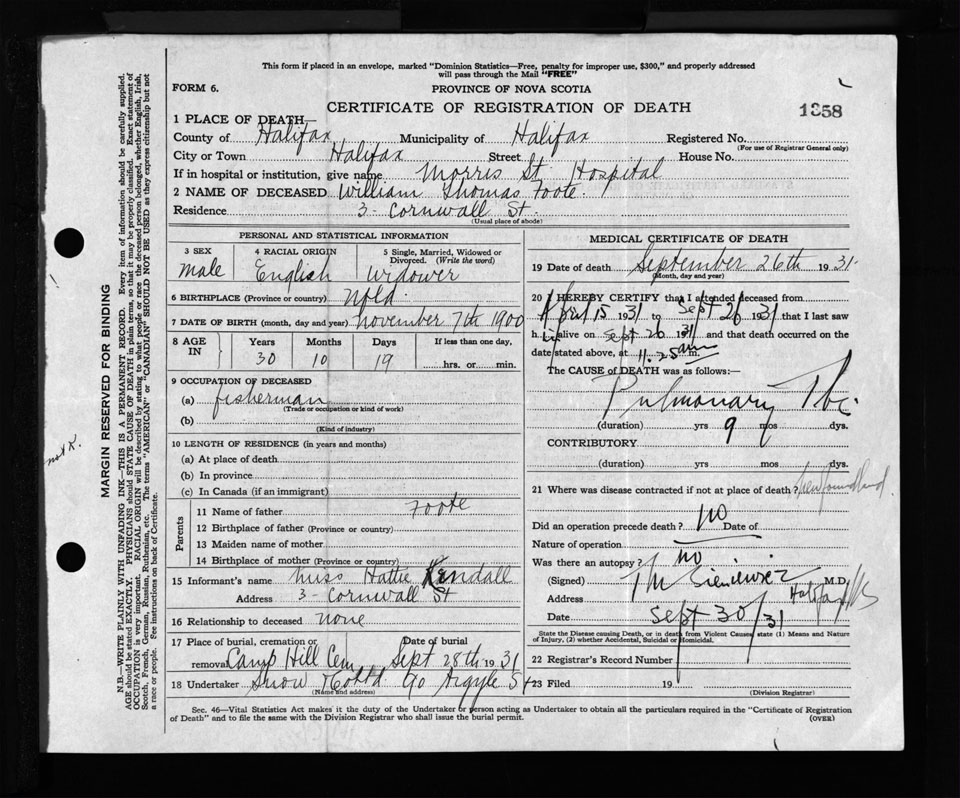 This form if placed in an envelope, marked "Dominion Statistics—Free, penalty for improper use, $300," and properly addressed
will pass through the Mail "FREE"
FORM 6.
PROVINCE OF NOVA SCOTIA
CERTIFICATE OF REGISTRATION OF DEATH
1358
1 PLACE OF DEATH
County of Halifax Municipality of Halifax Registered No.
(For use of Registrar General only)
City or Town Halifax Street House No.
If in hospital or institution, give name Morris St. Hospital
2 NAME OF DECEASED William Thomas Foote.
Residence 3 - Cornwall St.
(Usual place of abode)
PERSONAL AND STATISTICAL INFORMATION
3 SEX 4 RACIAL ORIGIN 5 Single, Married, Widowed or
Divorced. (Write the word)
male English Widower
6 BIRTHPLACE (Province or country) Nfld.
7 DATE OF BIRTH (month, day and year) November 7th 1900
8 AGE IN Years Months Days If less than one day,
30 10 19 hrs. or min.
9 OCCUPATION OF DECEASED
(a) fisherman
(Trade or occupation or kind of work)
(b)
(Kind of industry)
10 LENGTH OF RESIDENCE (in years and months)
(a) At place of death
(b) In province
(c) In Canada (if an immigrant)
Parents
11 Name of father Foote
12 Birthplace of father (Province or country)
13 Maiden name of mother
14 Birthplace of mother (Province or country)
15 Informant's name Miss Hattie Kendall
Address 3 - Cornwall St
16 Relationship to deceased none
17 Place of burial, cremation or Date of burial
removal Camp Hill Cem Sept 28th 1931
18 Undertaker Snow & Co Ltd 90 Argyle St
(Name and address)
MEDICAL CERTIFICATE OF DEATH
19 Date of death September 26th 1931.
(Month, day and year)
20 I HEREBY CERTIFY that I attended deceased from
April 15 1931 to Sept 26 1931 that I last saw
him alive on Sept 26 1931 and that death occurred on the
date stated above, at 11.25 am m.
The CAUSE of DEATH was as follows:—
Pulmonary Tbc.
(duration) yrs 9 mos dys.
CONTRIBUTORY
(duration) yrs mos dys.
21 Where was disease contracted if not at place of death? Newfoundland.
Did an operation precede death? no Date of
Nature of operation
Was there an autopsy? no
(Signed) M.D.
Address Halifax NS
Date Sept 30/31
State the Disease causing Death, or in death from Violent Causes, state (1) Means and Nature
of Injury, (2) whether Accidental, Suicidal or Homicidal.
22 Registrar's Record Number
23 Filed 19
(Division Registrar)
Sec. 46—Vital Statistics Act makes it the duty of the Undertaker or person acting as Undertaker to obtain all the particulars required in the "Certificate of Registration
of Death" and to file the same with the Division Registrar who shall issue the burial permit. (OVER)
MARGIN RESERVED FOR BINDING
N.B.—WRITE PLAINLY WITH UNFADING INK—THIS IS A PERMANENT RECORD. Every item of information should be carefully supplied.
AGE should be stated EXACTLY. PHYSICIANS should STATE CAUSE OF DEATH in plain terms, so that it may be properly classified. Exact statement of
OCCUPATION is very important. RACIAL ORIGIN will be described by stating to what people or race the deceased person belonged, whether English, Irish,
Scotch, French, German, Russian, Ruthenian, etc. The terms "AMERICAN" or "CANADIAN" SHOULD NOT BE USED as they express citizenship but not
a race or people. See instructions on back of Certificate.
not K.